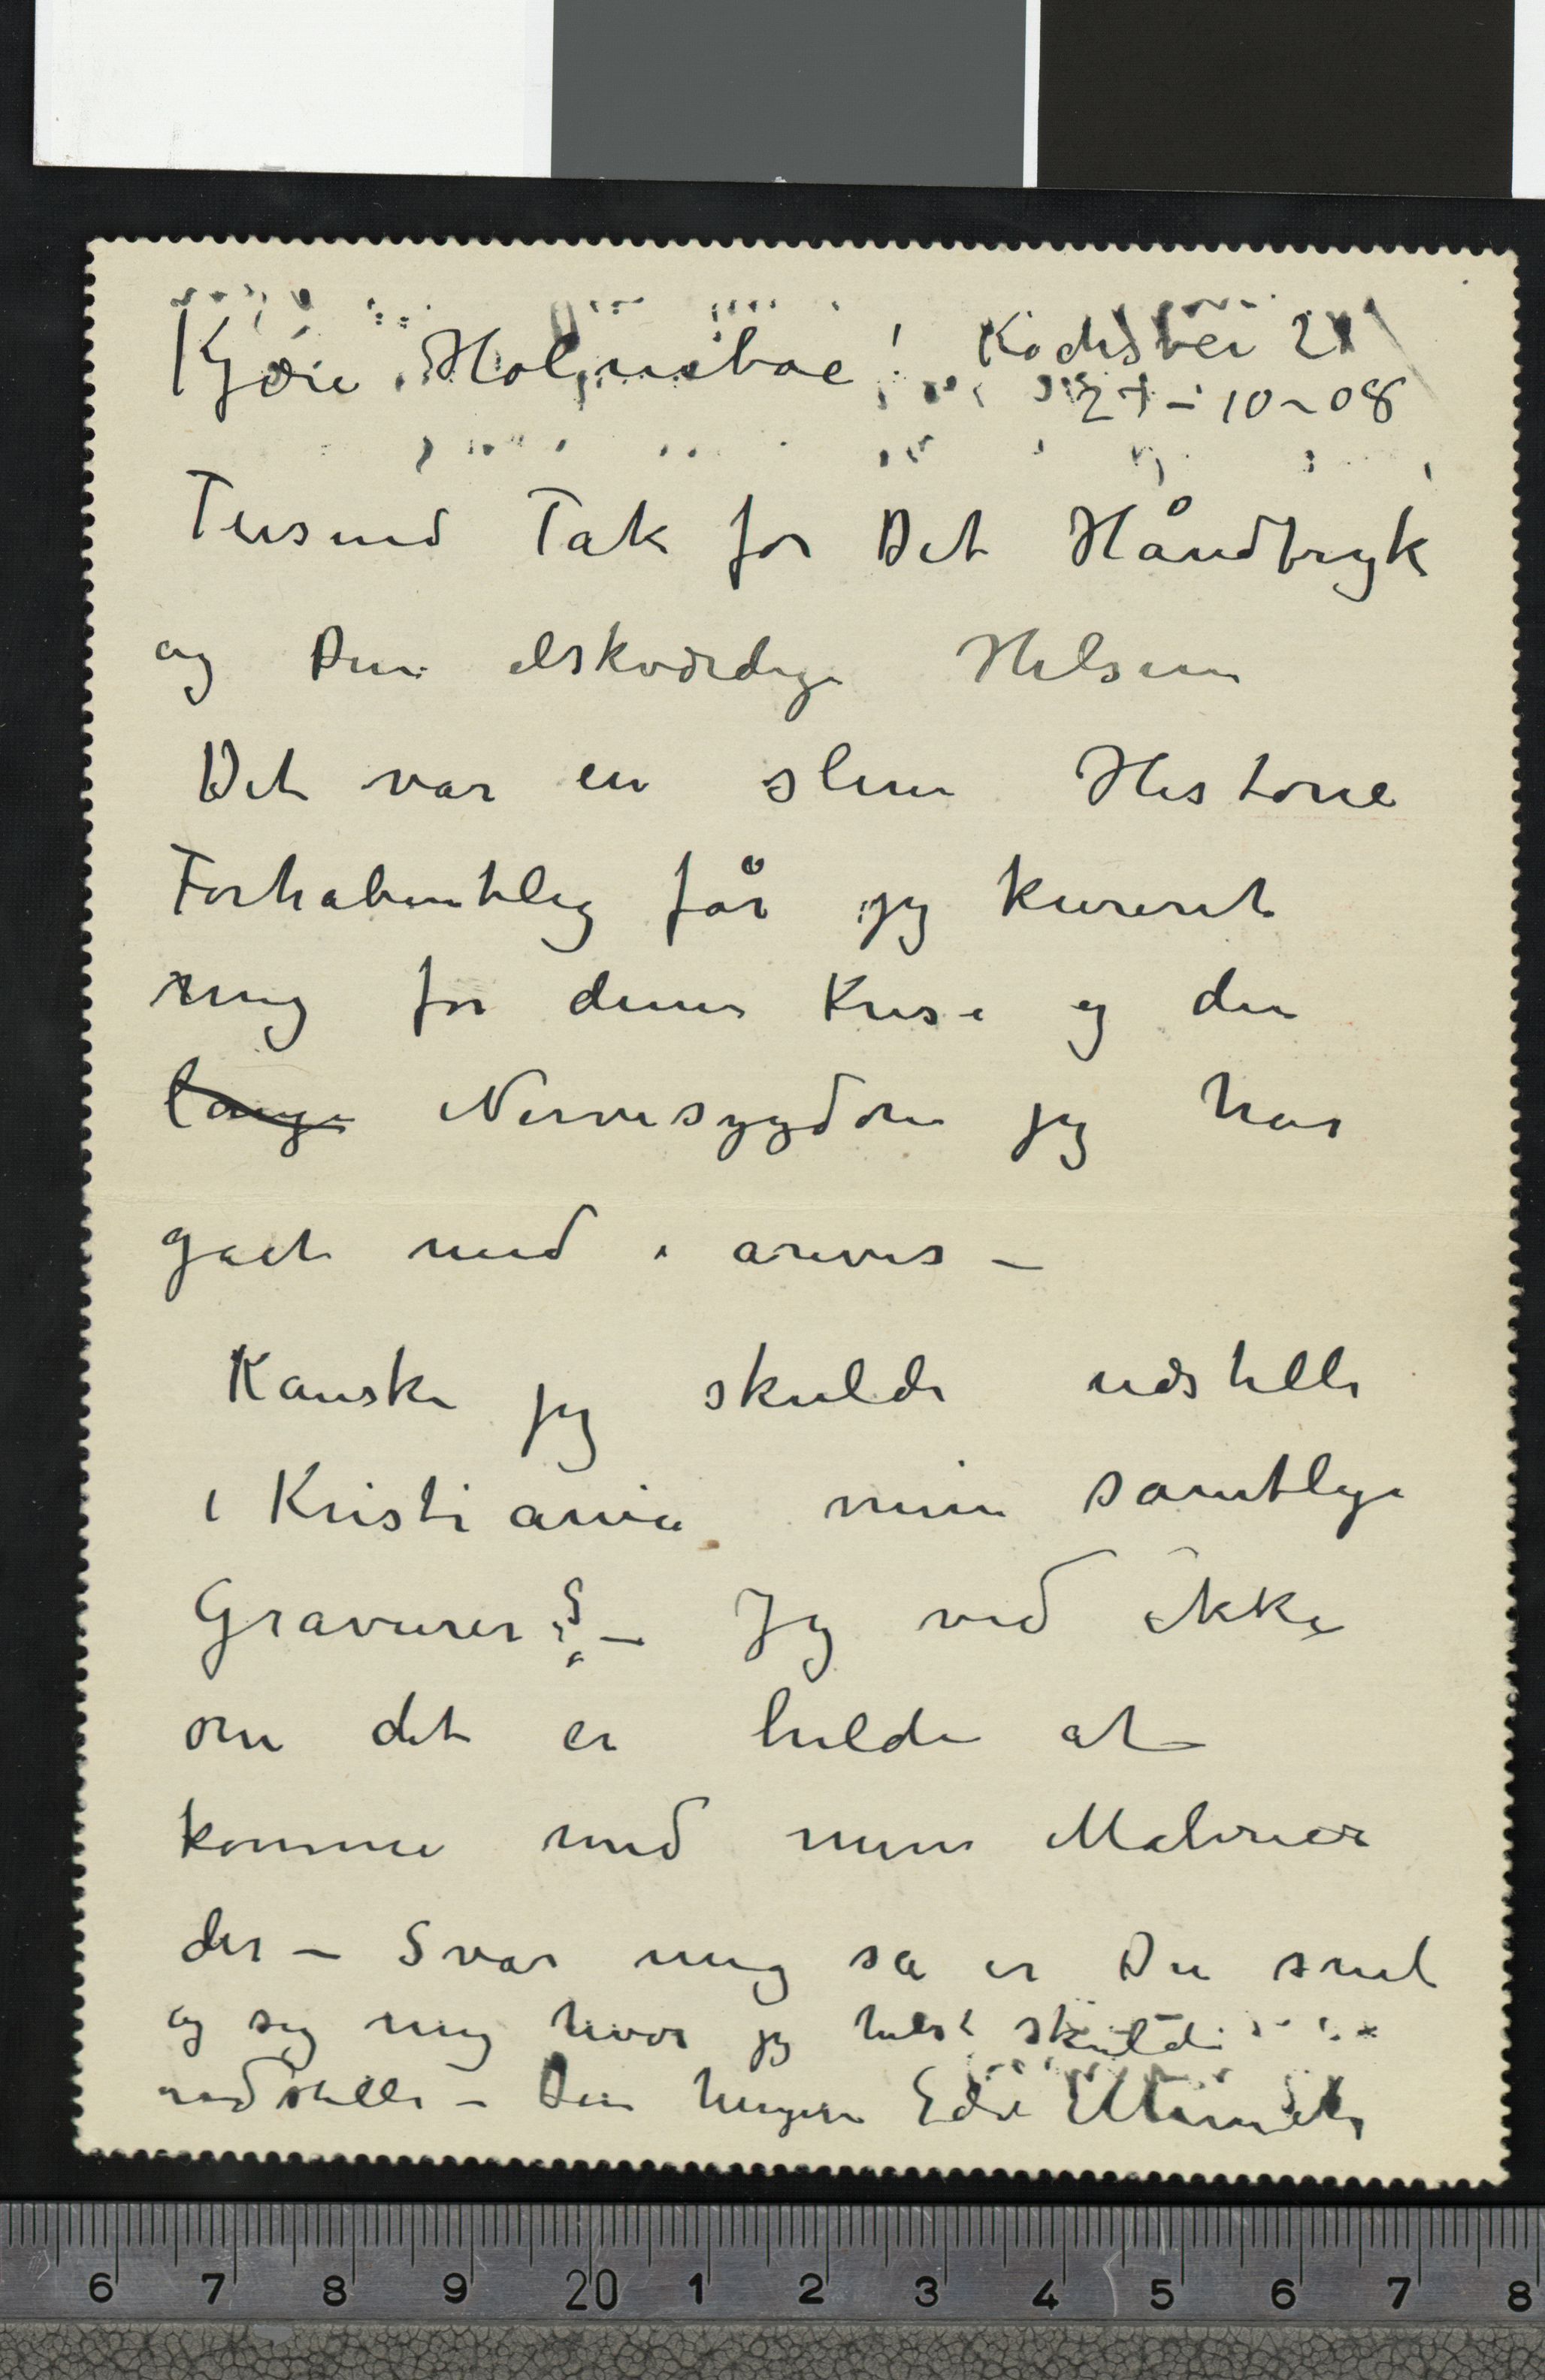 Kjære Holmeboe! Kochsvei 21
27–10–08
Tusind Tak for Dit Håndtryk
og Din elskværdige Hilsen
Det var en slem Historie
Forhåbentlig får jeg kureret
mig for denne Krise og den
lange Nervesygdom jeg har
gået med i arevis –
Kanske jeg skulde udstille
i Kristiania mine samtlige
Gravurer? – Jeg ved ikke
om det er heldi at
komme med mine Malerier
der – Svar mig sa er Du snil
og sig mig hvor jeg helst skulde
udstille – Din hengivne Edv Munch
6 7 8 9 20 1 2 3 4 5 6 7 8